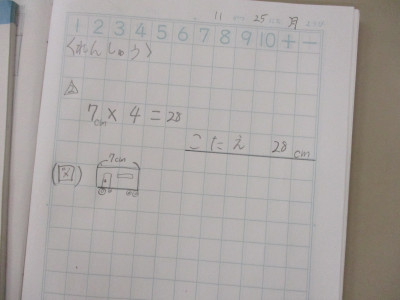 11 25 月
1 2 3 4 5 6 7 8 9 10 + −
〈れんしゅう〉
7cm × 4 = 28
こたえ 28cm
(図) 7cm